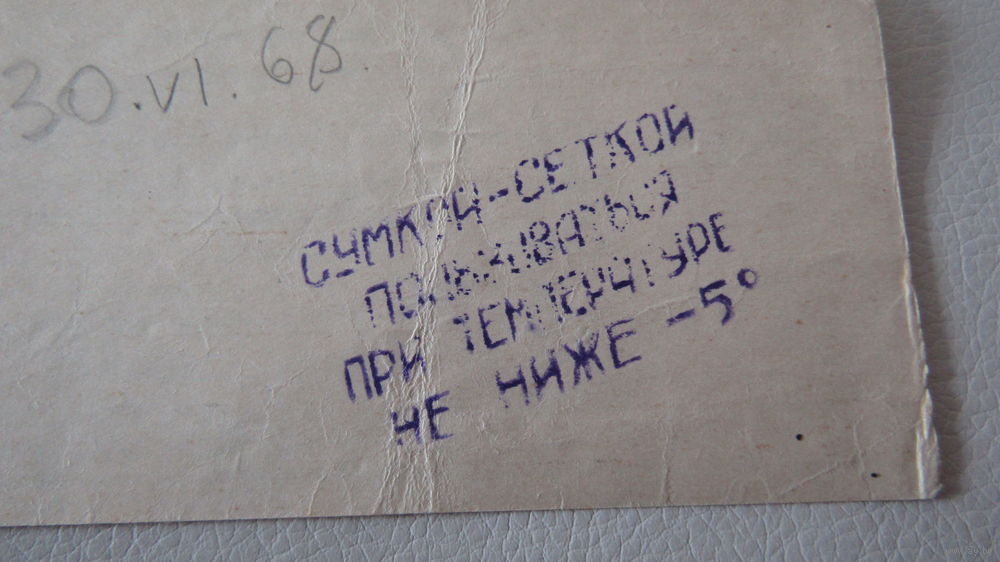 30.VI.68
СУМКОЙ-СЕТКОЙ
ПОЛЬЗОВАТЬСЯ
ПРИ ТЕМПЕРАТУРЕ
НЕ НИЖЕ -5°